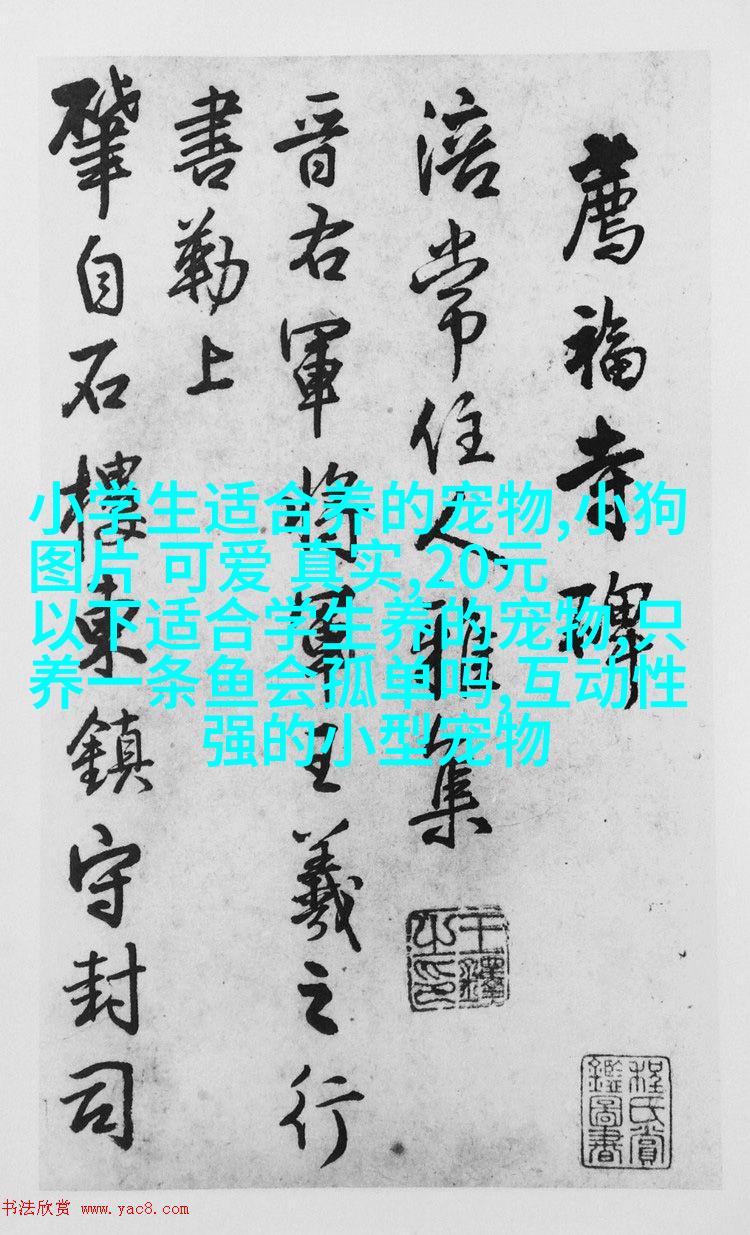 薦福寺碑
涪常住人雅集
晋右軍將軍王羲之行
書勒上
肇自石樓東鎮守封司
王鐸之印
程氏賞鑑圖書
小学生适合养的宠物,小狗
图片 可爱 真实,20元
以下适合学生养的宠物,只
养一条鱼会孤单吗,互动性
强的小型宠物
书法欣赏 www.yac8.com